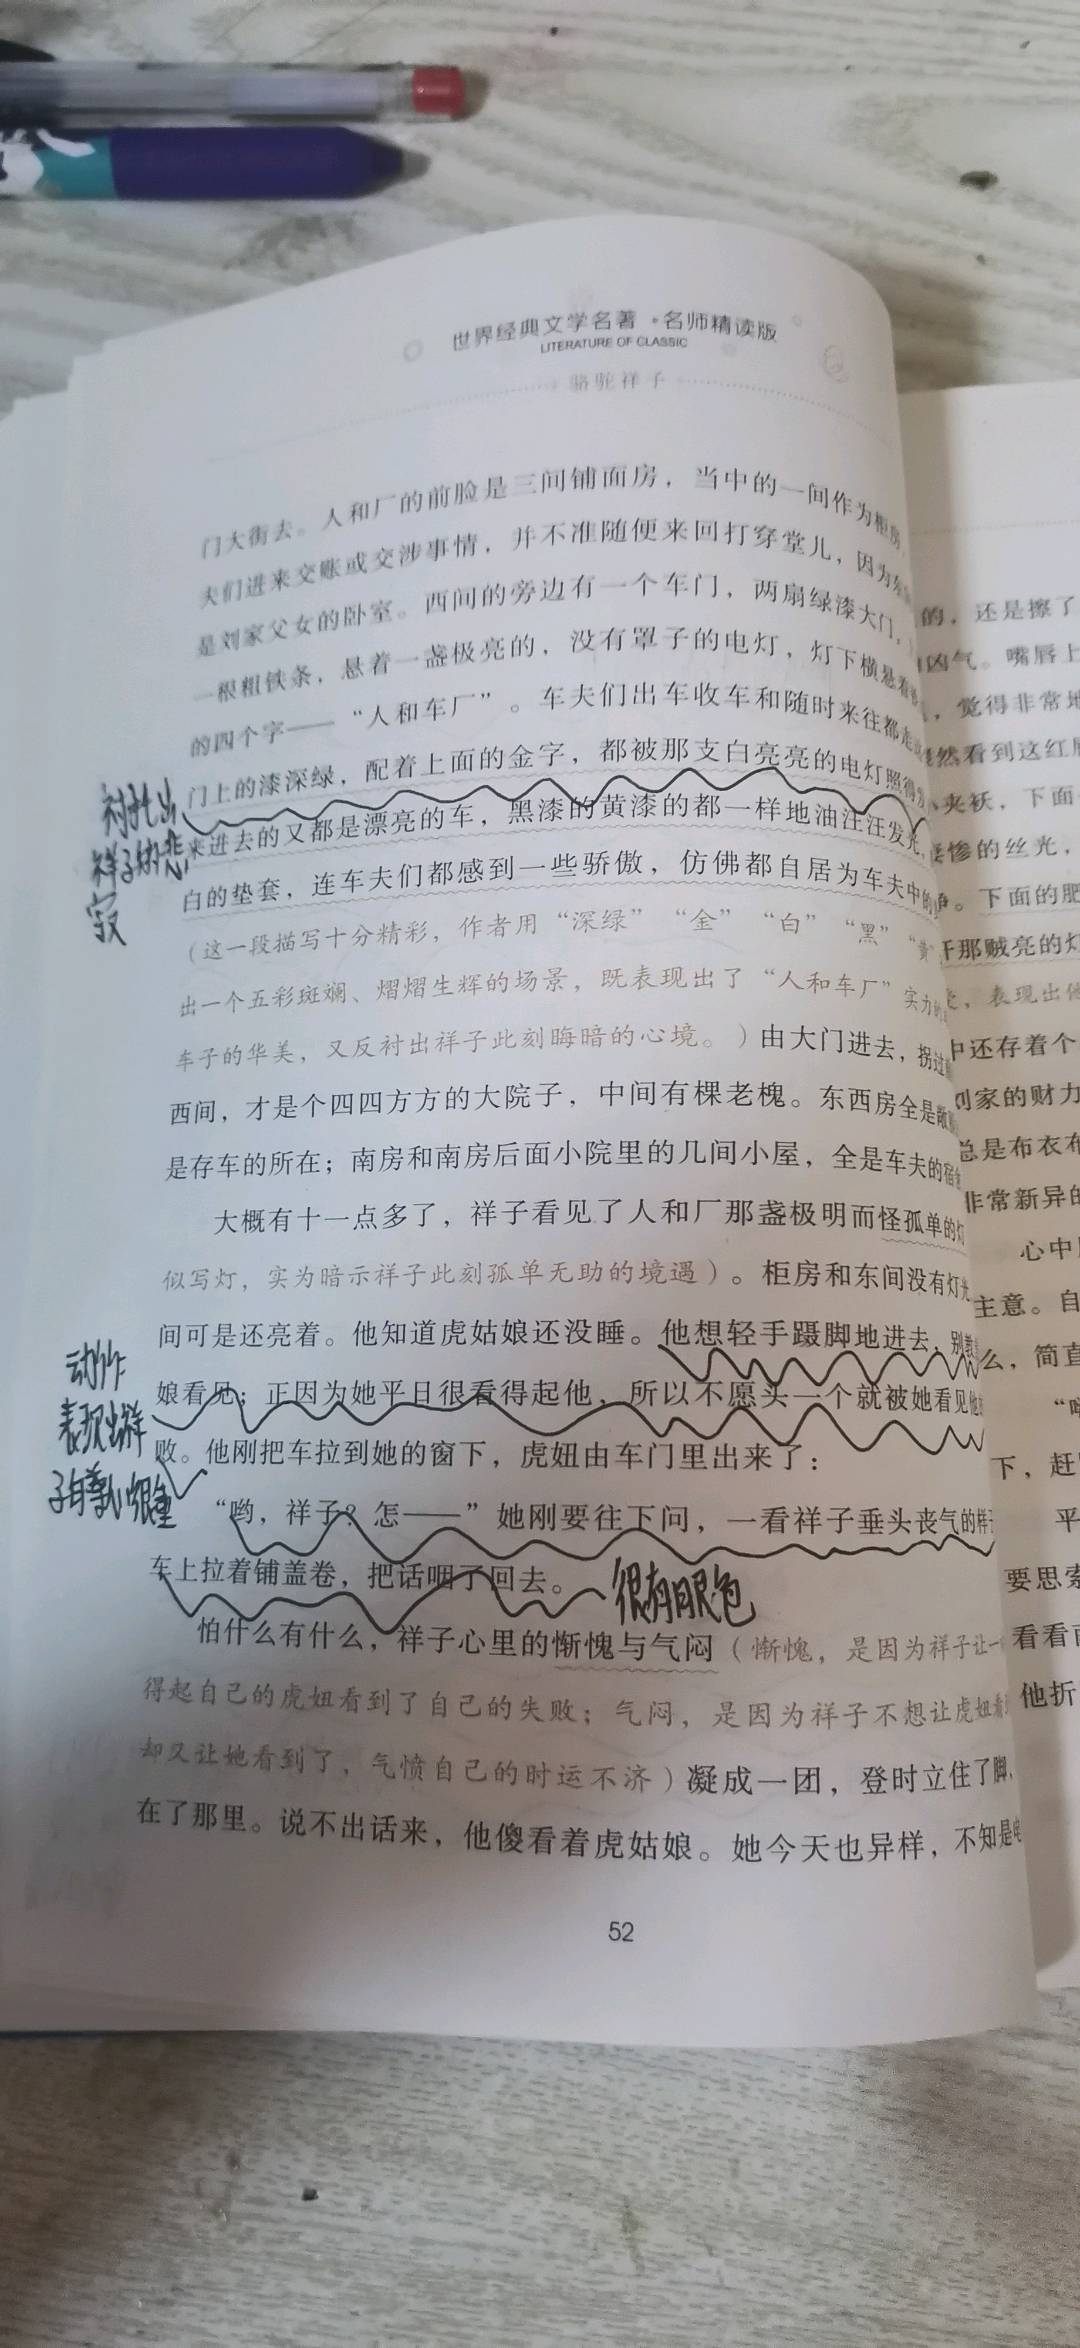 世界经典文学名著·名师精读版
LITERATURE OF CLASSIC
骆驼祥子
门大街去。人和厂的前脸是三间铺面房，当中的一间作为柜房
夫们进来交账或交涉事情，并不准随便来回打穿堂儿，因为东
是刘家父女的卧室。西间的旁边有一个车门，两扇绿漆大门，
一根粗铁条，悬着一盏极亮的，没有罩子的电灯，灯下横悬着
的四个字——“人和车厂”。车夫们出车收车和随时来往都走
门上的漆深绿，配着上面的金字，都被那支白亮亮的电灯照得
来进去的又都是漂亮的车，黑漆的黄漆的都一样地油汪汪发光，
白的垫套，连车夫们都感到一些骄傲，仿佛都自居为车夫中的
（这一段描写十分精彩，作者用“深绿”“金”“白”“黑”“黄”
出一个五彩斑斓、熠熠生辉的场景，既表现出了“人和车厂”实力的
车子的华美，又反衬出祥子此刻晦暗的心境。）由大门进去，拐过
西间，才是个四四方方的大院子，中间有棵老槐。东西房全是敞
是存车的所在；南房和南房后面小院里的几间小屋，全是车夫的宿
大概有十一点多了，祥子看见了人和厂那盏极明而怪孤单的灯
似写灯，实为暗示祥子此刻孤单无助的境遇）。柜房和东间没有灯光
间可是还亮着。他知道虎姑娘还没睡。他想轻手蹑脚地进去，别教
娘看见；正因为她平日很看得起他，所以不愿头一个就被她看见他
败。他刚把车拉到她的窗下，虎妞由车门里出来了：
“哟，祥子？怎——”她刚要往下问，一看祥子垂头丧气的样子
车上拉着铺盖卷，把话咽了回去。
很有眼色
怕什么有什么，祥子心里的惭愧与气闷（惭愧，是因为祥子让一
得起自己的虎妞看到了自己的失败；气闷，是因为祥子不想让虎妞看
却又让她看到了，气愤自己的时运不济）凝成一团，登时立住了脚，
在了那里。说不出话来，他傻看着虎姑娘。她今天也异样，不知是电
52
衬托出
祥子的悲
寂
动作
表现出祥
子自尊心很重
的，还是擦了
凶气。嘴唇上
，觉得非常地
然看到这红唇
小夹袄，下面
惨的丝光，
。下面的肥
那贼亮的灯
，表现出他
中还存着个
刘家的财力
总是布衣布
非常新异的
心中
主意。自
么，简直
下，赶
平
要思索
看看
他折